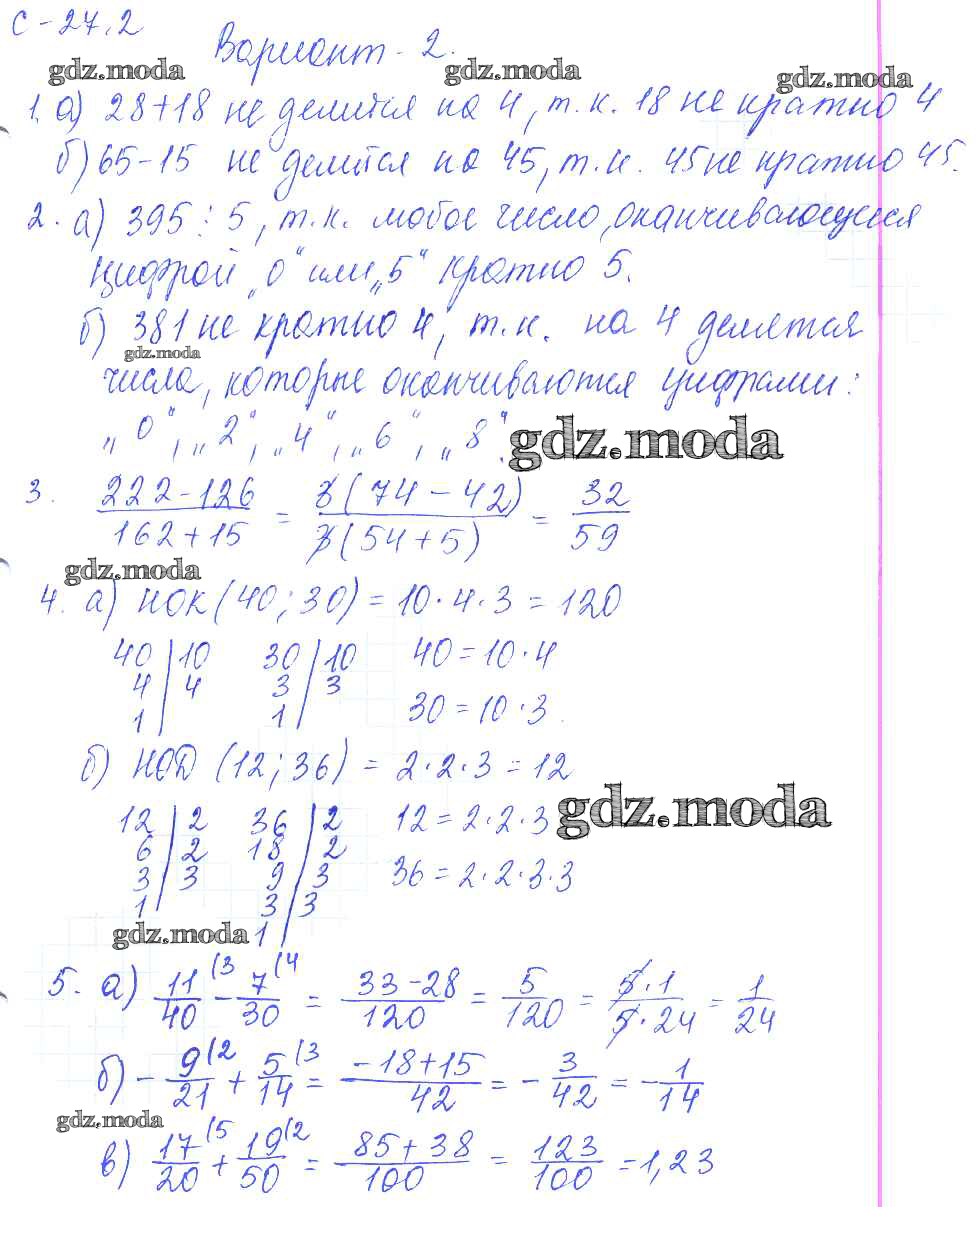 С-27.2
Вариант-2.
gdz.moda gdz.moda gdz.moda
1. а) 28+18 не делится на 4, т.к. 18 не кратно 4
б) 65-15 не делится на 45, т.к. 45 не кратно 45.
2. а) 395 ⋮ 5, т.к. любое число, оканчивающиеся
цифрой „0“ или „5“ кратно 5.
б) 381 не кратно 4, т.к. на 4 делятся
gdz.moda
числа, которые оканчиваются цифрами:
„0“, „2“, „4“, „6“, „8“.
gdz.moda
3. (222-126)/(162+15) = 3(74-42)/3(54+5) = 32/59
gdz.moda
4. а) НОК (40; 30) = 10·4·3 = 120
40|10 30|10 40=10·4
4|4 3|3
1| 1| 30=10·3.
б) НОД (12; 36) = 2·2·3 = 12
gdz.moda
12|2 36|2 12=2·2·3
6|2 18|2
3|3 9|3 36=2·2·3·3
1| 3|3
gdz.moda 1|
5. а) 11/40 (3 - 7/30 (4 = (33-28)/120 = 5/120 = 5·1/5·24 = 1/24
б) -9/21 (2 + 5/14 (3 = (-18+15)/42 = -3/42 = -1/14
gdz.moda
в) 17/20 (5 + 19/50 (2 = (85+38)/100 = 123/100 = 1,23